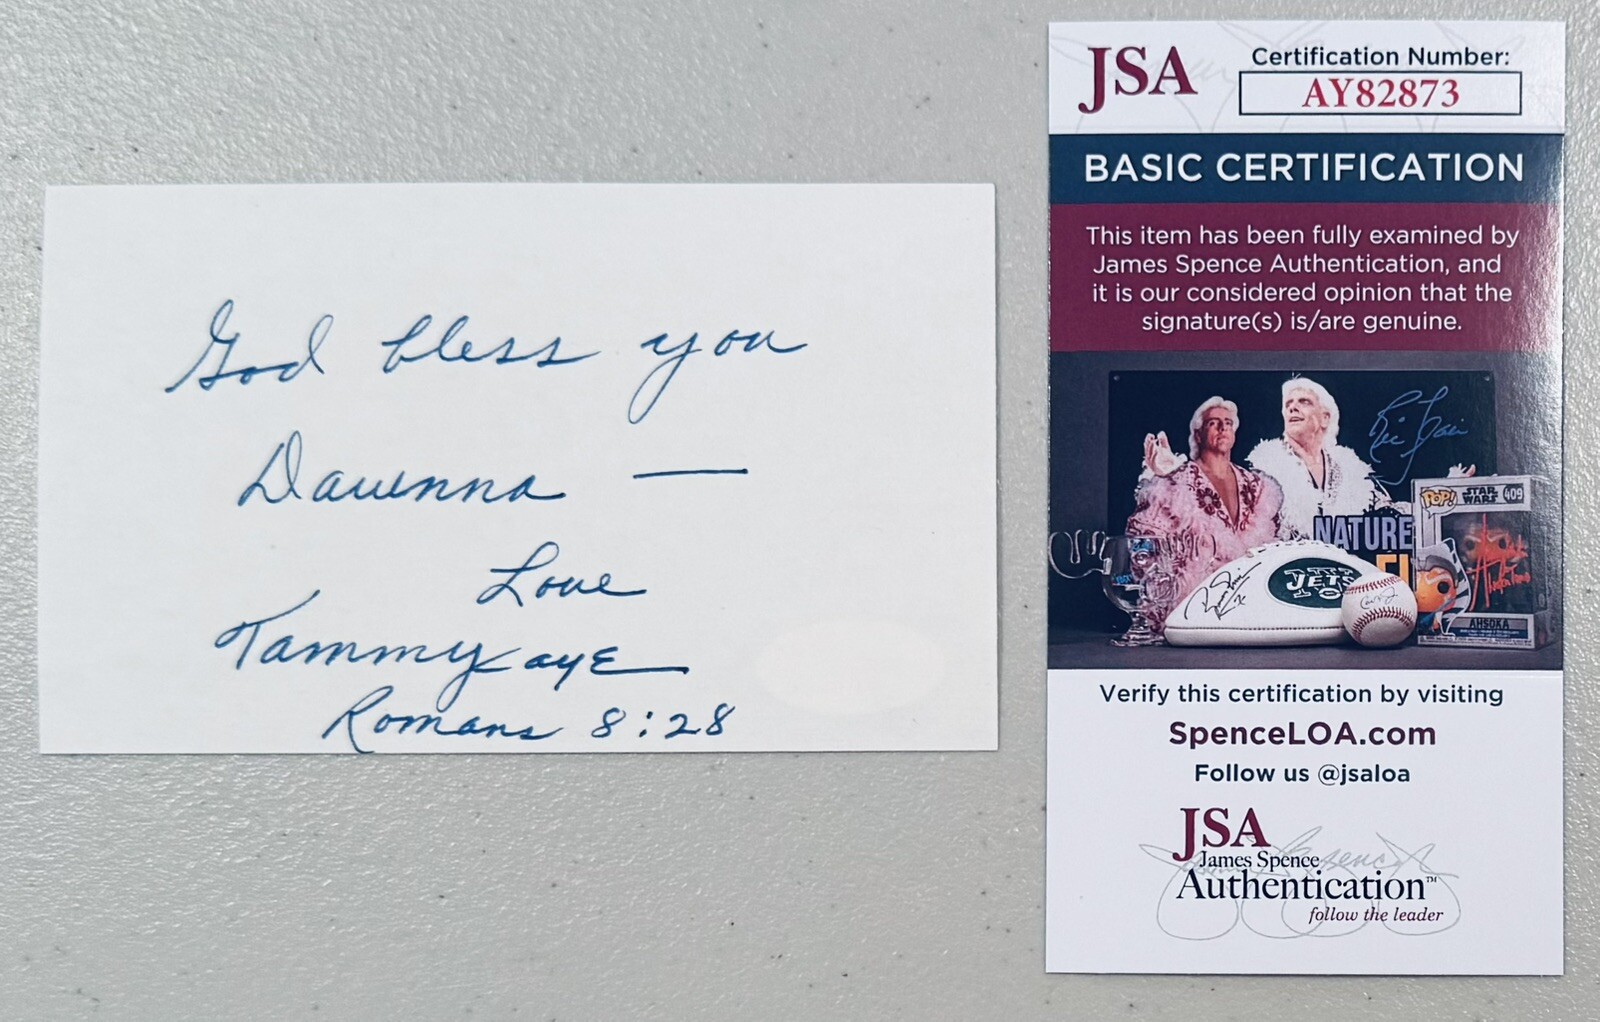 God bless you
Dawnna —
Love
TammyFaye
Romans 8:28
JSA
Certification Number:
AY82873
BASIC CERTIFICATION
This item has been fully examined by
James Spence Authentication, and
it is our considered opinion that the
signature(s) is/are genuine.
Ric Flair
NATURE
POP!
STAR
WARS
409
JETS
AHSOKA
Verify this certification by visiting
SpenceLOA.com
Follow us @jsaloa
JSA
James Spence
Authentication™
follow the leader